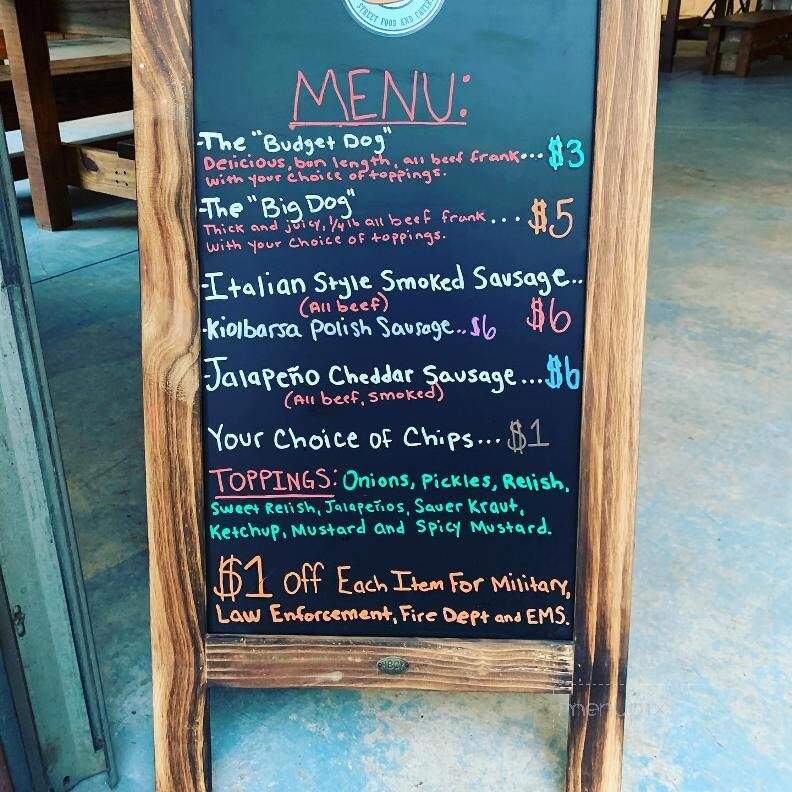 STREET FOOD AND
MENU:
-The "Budget Dog"
Delicious, bun length, all beef frank... $3
with your choice of toppings.
-The "Big Dog"
Thick and juicy, 1/4 lb all beef frank... $5
with your choice of toppings.
-Italian Style Smoked Sausage..
(All beef) $6
-Kiolbarsa Polish Sausage.. $6
-Jalapeño Cheddar Sausage... $6
(All beef, smoked)
Your Choice of Chips... $1
TOPPINGS: Onions, Pickles, Relish,
Sweet Relish, Jalapeños, Sauer Kraut,
Ketchup, Mustard and Spicy Mustard.
$1 off Each Item For Military,
Law Enforcement, Fire Dept and EMS.